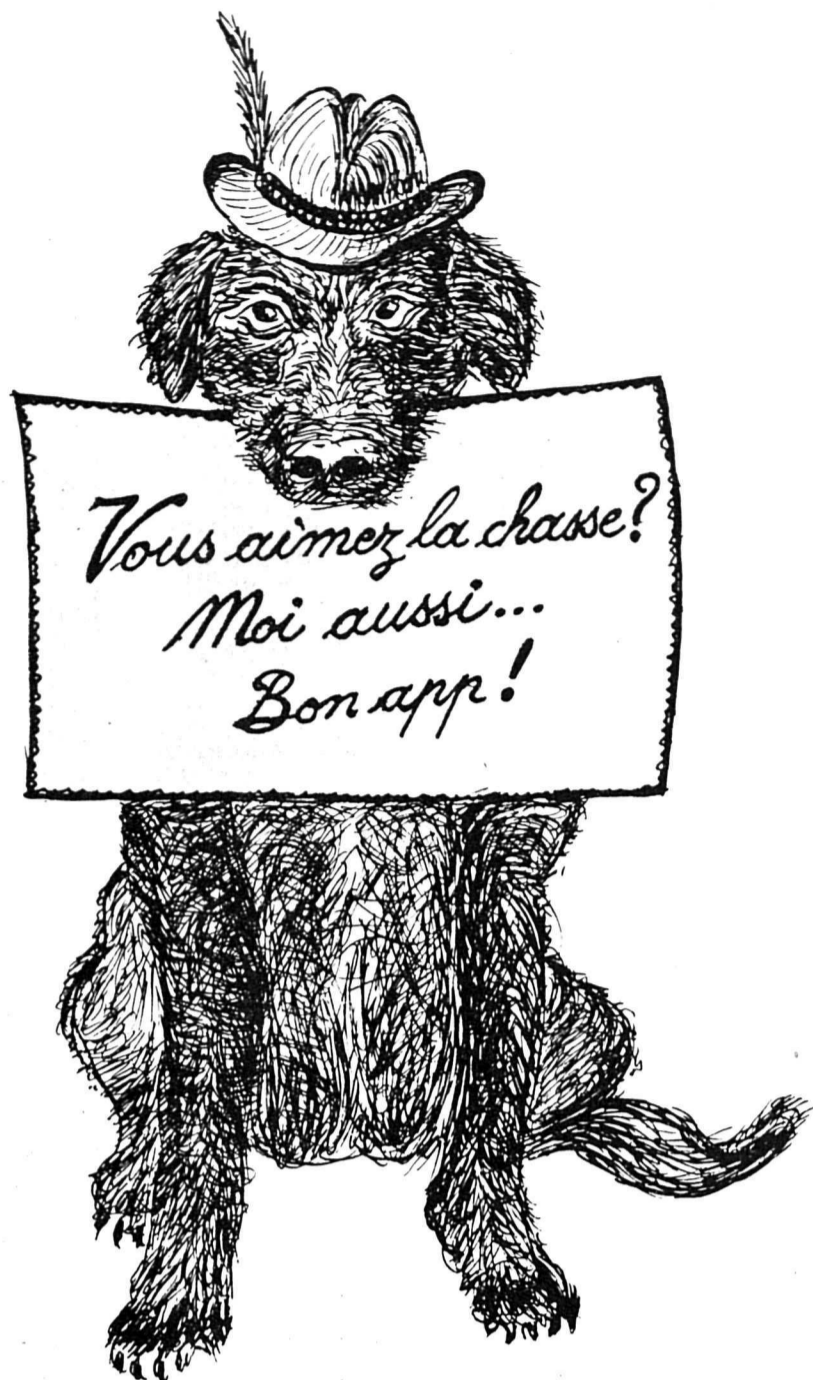 Vous aimez la chasse?
Moi aussi...
Bon app!